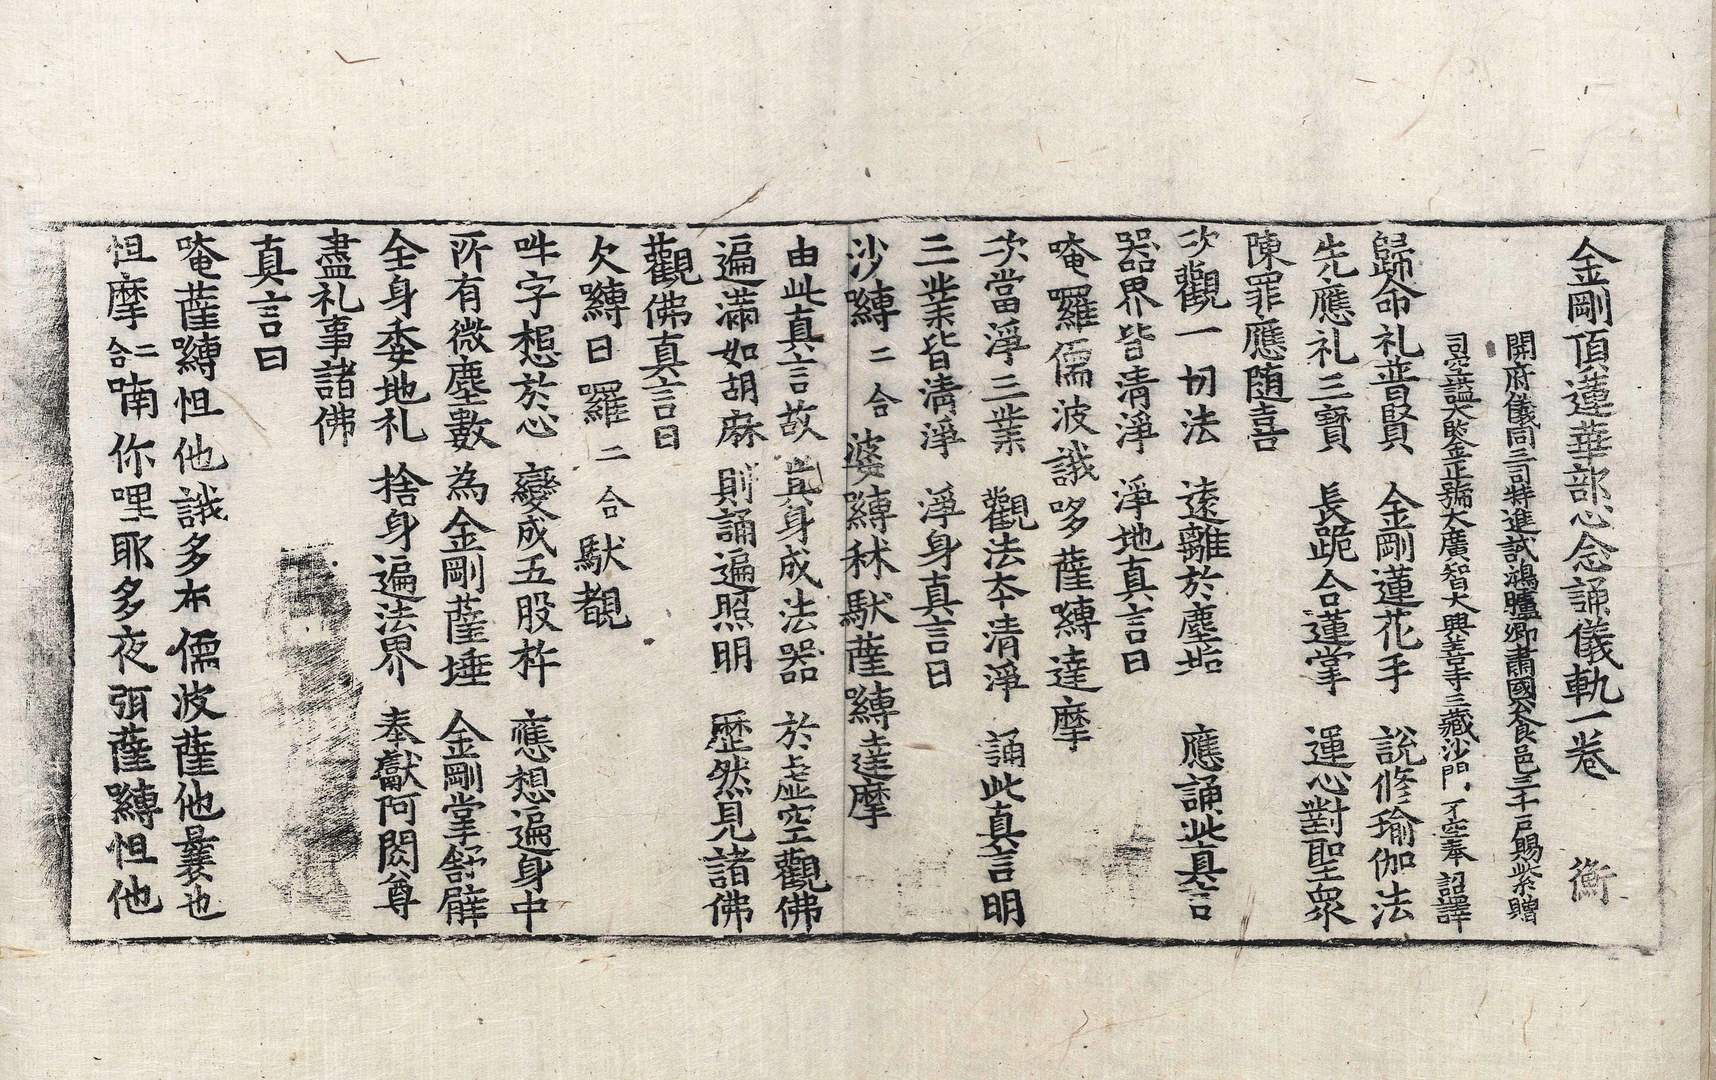 金剛頂蓮華部心念誦儀軌一卷 衡
開府儀同三司特進試鴻臚卿肅國公食邑三千戶賜紫贈
司空謚大鑒正號大廣智大興善寺三藏沙門不空奉 詔譯
歸命礼普賢 金剛蓮花手 說修瑜伽法
先應礼三寶 長跪合蓮掌 運心對聖衆
陳罪應随喜
次觀一切法 遠離於塵垢 應誦此真言
器界皆清淨 淨地真言曰
唵羅儒波誐哆薩嚩達摩
次當淨三業 觀法夲清淨 誦此真言明
三業皆清淨 淨身真言曰
沙嚩二合婆嚩秫馱薩嚩達摩
由此真言故 其身成法器 於虛空觀佛
遍滿如胡麻 則誦遍照明 歷然見諸佛
觀佛真言曰
欠嚩日羅二合馱覩
吽字想於心 變成五股杵 應想遍身中
所有微塵數 為金剛薩埵 金剛掌舒臂
全身委地礼 捨身遍法界 奉獻阿閦尊
盡礼事諸佛
真言曰
唵薩嚩怛他誐多布儒波薩他曩也
怛摩二合喃你哩耶多夜弭薩嚩怛他